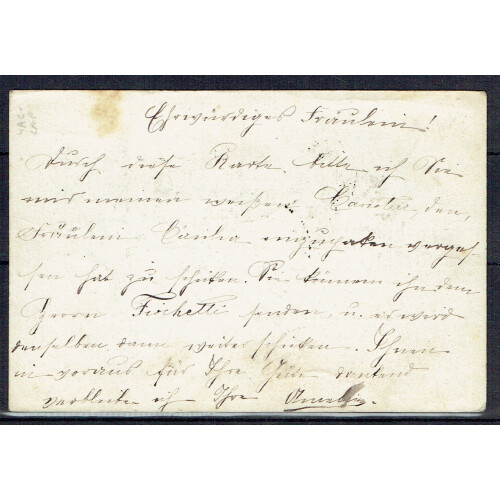 Ehrwürdiges Fräulein!
Durch diese Karte bitte ich Sie
mir meinen weißen den,
Fräulein einzupaken verges-
sen hat zu schiken. Sie können ihn dem
Herrn Fischetti senden, u. er wird
denselben dann weiter schiken. Ihnen
im voraus für Ihre Güte dankend
verbleibe ich Ihre